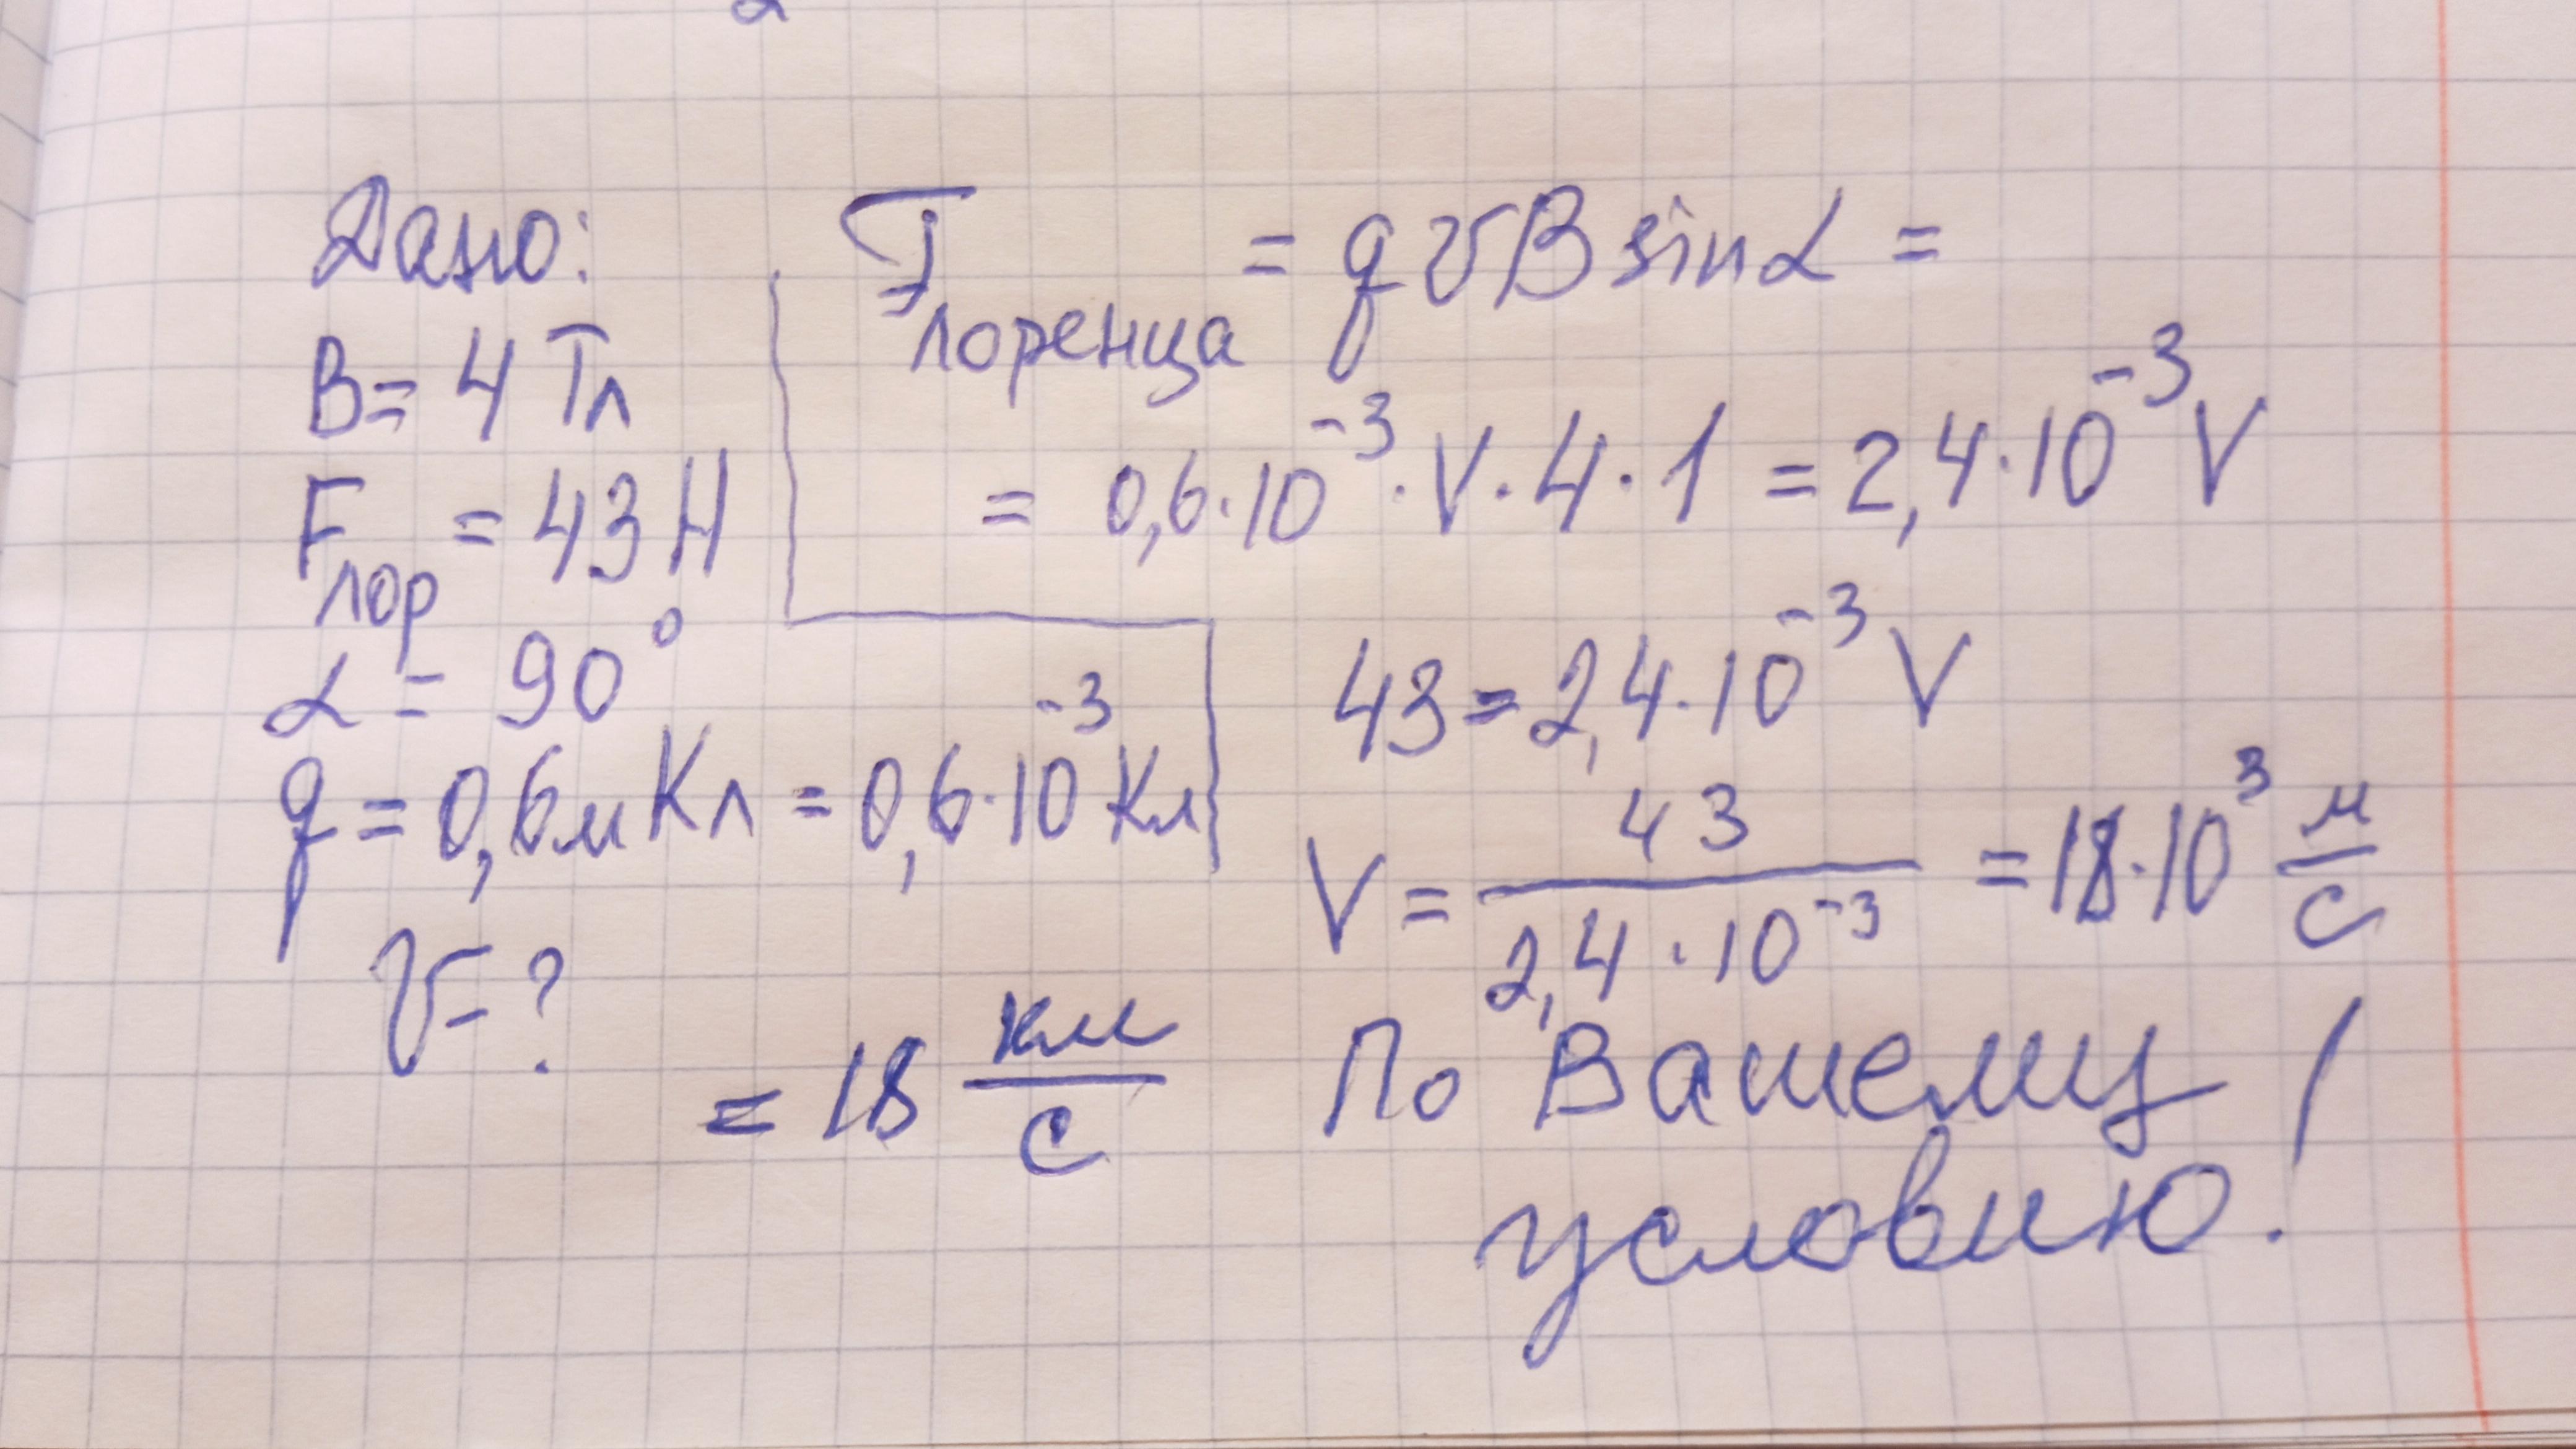 Дано:
B= 4 Тл
Fлор = 43 Н
α = 90°
q = 0,6мКл = 0,6·10⁻³ Кл
v - ?
Fлоренца = qvB sinα =
= 0,6·10⁻³·V·4·1 = 2,4·10⁻³V
43 = 2,4·10⁻³V
V = 43/2,4·10⁻³ = 18·10³ м/с
= 18 км/с
По Вашему
условию!